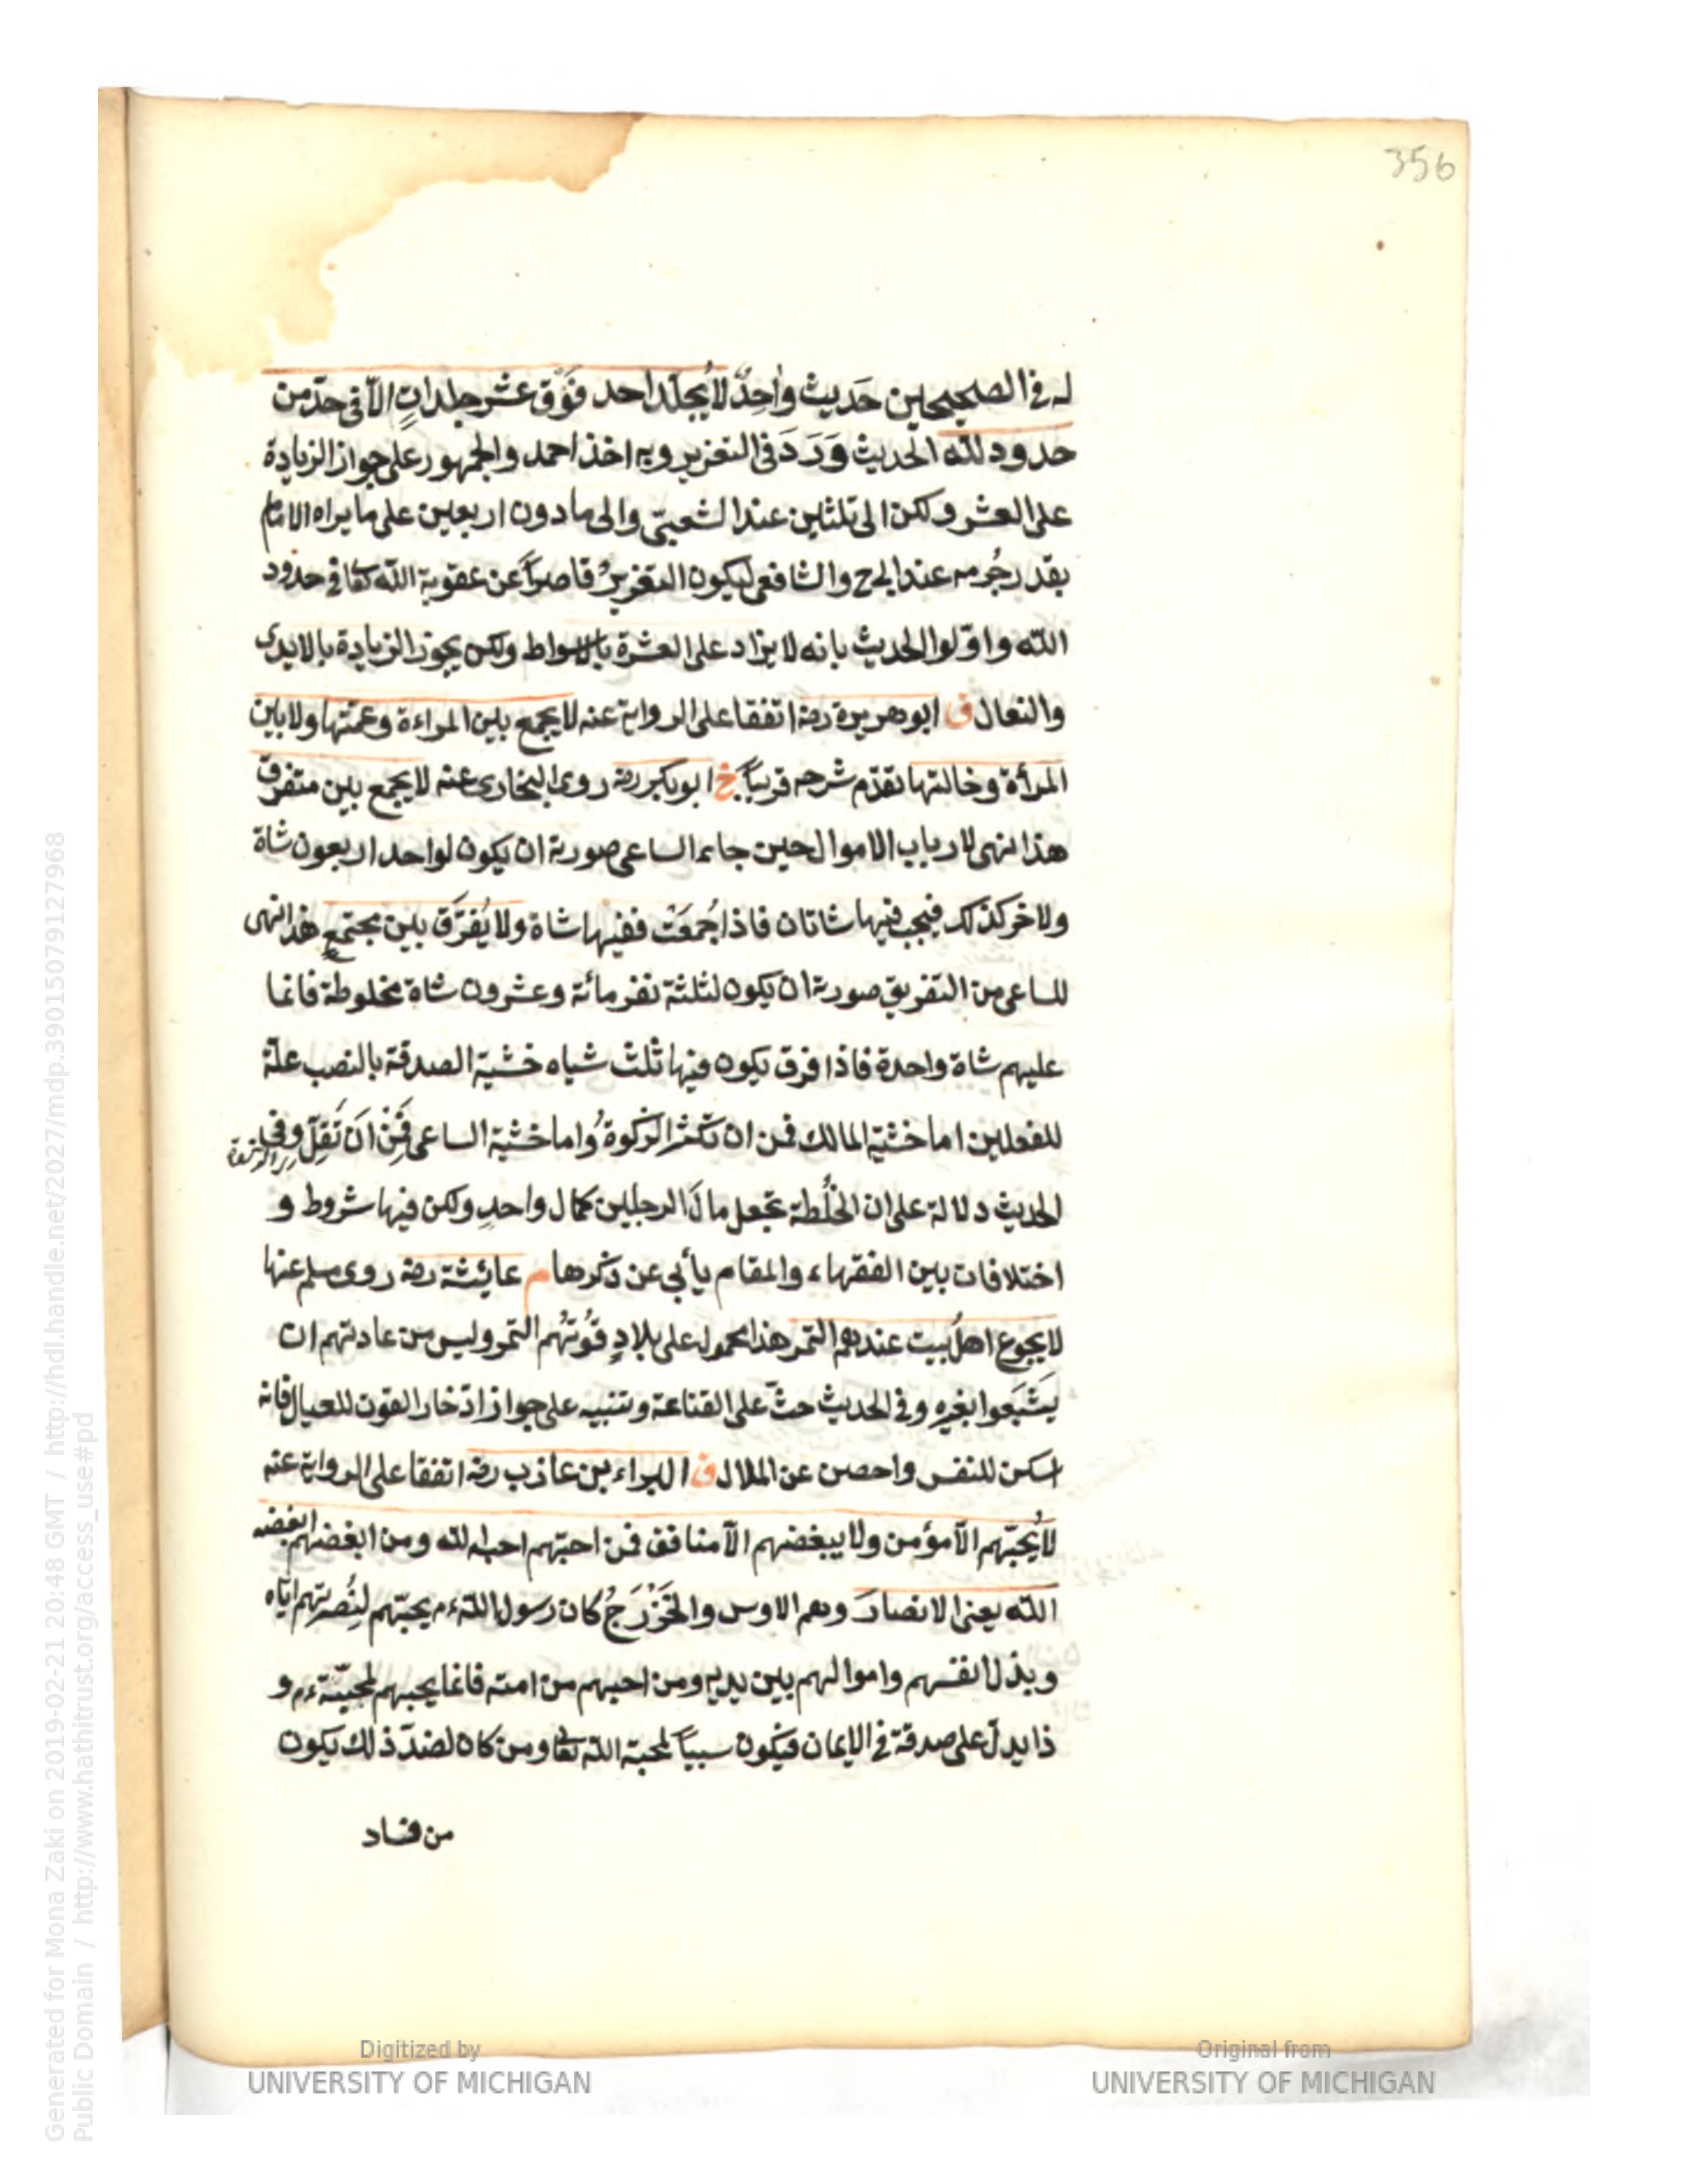 356
له في الصحيحين حَديث واحِدٌ لاُيجلَد احد فَوْق عشر جلداتٍ الاّ في حدّ من
حدود لله الحديث وَرَدَ في التعزير وبه اخذ احمد والجمهور على جواز الزيادة
على العشر ولكن الى ثلثين عند الشعبيّ والى ما دون اربعين على ما يراه الامام
بقدر جُرمه عند ابي ح والشافعي ليكون التعزيرُ قاصراً عن عقوبة الله تعا في حدود
الله واوّلوا الحديث بانه لا يزاد على العشرة بالاسواط ولكن يجوز الزيادة بالايدى
والنعال ق ابو هريرة رضه اتفقا على الرواية عنه لا يجمع بين المراءة وعمّتها ولا بين
المرأة وخالتها تقدّم شرحه قريبًا خ ابو بكر رضه روى البخارى عنه لا يجمع بين متفرق
هذا نهى لارباب الاموال حين جاء الساعى صورته ان يكون لواحد اربعون شاة
ولاخر كذلك فيجب فيها شاتان فاذا جُمعَتْ ففيها شاة ولا يُفرَّق بين مجتمعٍ هذا نهى
للساعى من التفريق صورته ان يكون لثلثة نفر مائة وعشرون شاة مخلوطة فانما
عليهم شاة واحدة فاذا فرق يكون فيها ثلث شياه خشية الصدقة بالنصب علّة
للفعلين اما خشية المالك فمن ان تكثر الزكوةُ واما خشية الساعى فمِن ان تَقِلّ وفى
الحديث دلالة على ان الخُلْطة تجعل مالَ الرجلين كمال واحدٍ ولكن فيها شروط و
اختلافات بين الفقهاء والمقام يأبى عن ذكرها م عائشة رضه روى مسلم عنها
لا يجوع اهلُ بيت عندهم التمر هذا محمول على بلادٍ قُوتُهُم التمر وليس من عادتهم ان
يَشبَعوا بغيره وفي الحديث حثّ على القناعة وتنبيه على جواز ادّخار القوت للعيال فانه
اسكن للنفس واحصن عن الملال ق البراء بن عازب رضه اتفقا على الرواية عنه
لاُيحبّهم الاّ مؤمن ولا يبغضهم الاّ منافق فمن احبّهم احبه لله ومن ابغضهم ابغضه
الله يعنى الانصارَ وهم الاوس والخَزْرَجُ كان رسول الله ءم يحبّهم لنُصرتهم ايّاه
وبذل انفسهم واموالهم بين يديه ومن احبهم من امته فانما يحبهم لمحبّته ءم و
ذا يدلّ على صدقه في الايمان فيكون سبباً لمحبة الله تعا ومن كان لضدّ ذلك يكون
من فساد
Generated for Mona Zaki on 2019-02-21 20:48 GMT / http://hdl.handle.net/2027/mdp.39015079127968
Public Domain / http://www.hathitrust.org/access_use#pd
Digitized by
UNIVERSITY OF MICHIGAN
Original from
UNIVERSITY OF MICHIGAN